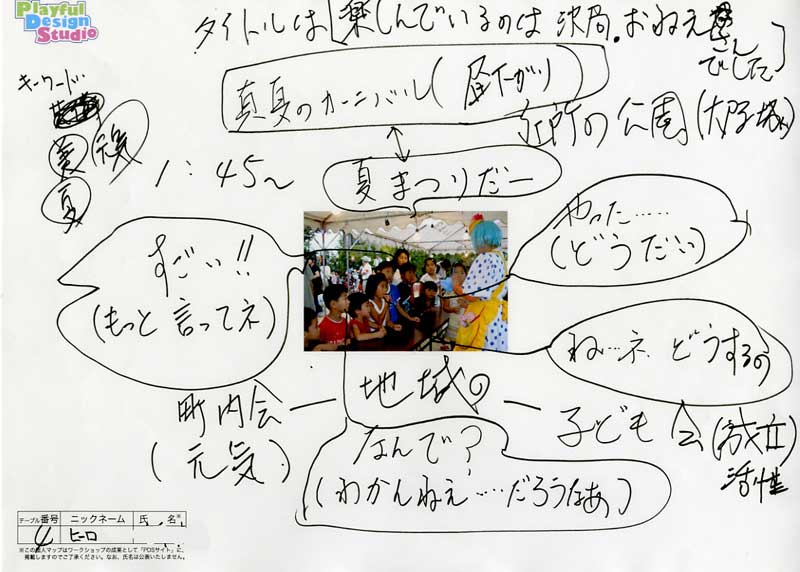 Playful
Design
Studio
タイトルは「楽しんでいるのは 決局.おねえ
さん
でした」
キーワード
真夏のカーニバル(昼下がり)
近所の公園(
笑顔
夏
1:45~
夏まつりだー
すごい!!
(もっと言ってネ)
やった……
(どうだい)
ね…ネ どうするの
町内会
(元気)
地域の
子ども会(成立
活性
なんで?
(わかんねえ……だろうなあ)
テーブル番号 ニックネーム 氏 名※
4 ヒーロ
※この個人マップはワークショップの成果として「PDSサイト」に、
掲載しますのでご了承ください。なお、氏名は公表いたしません。